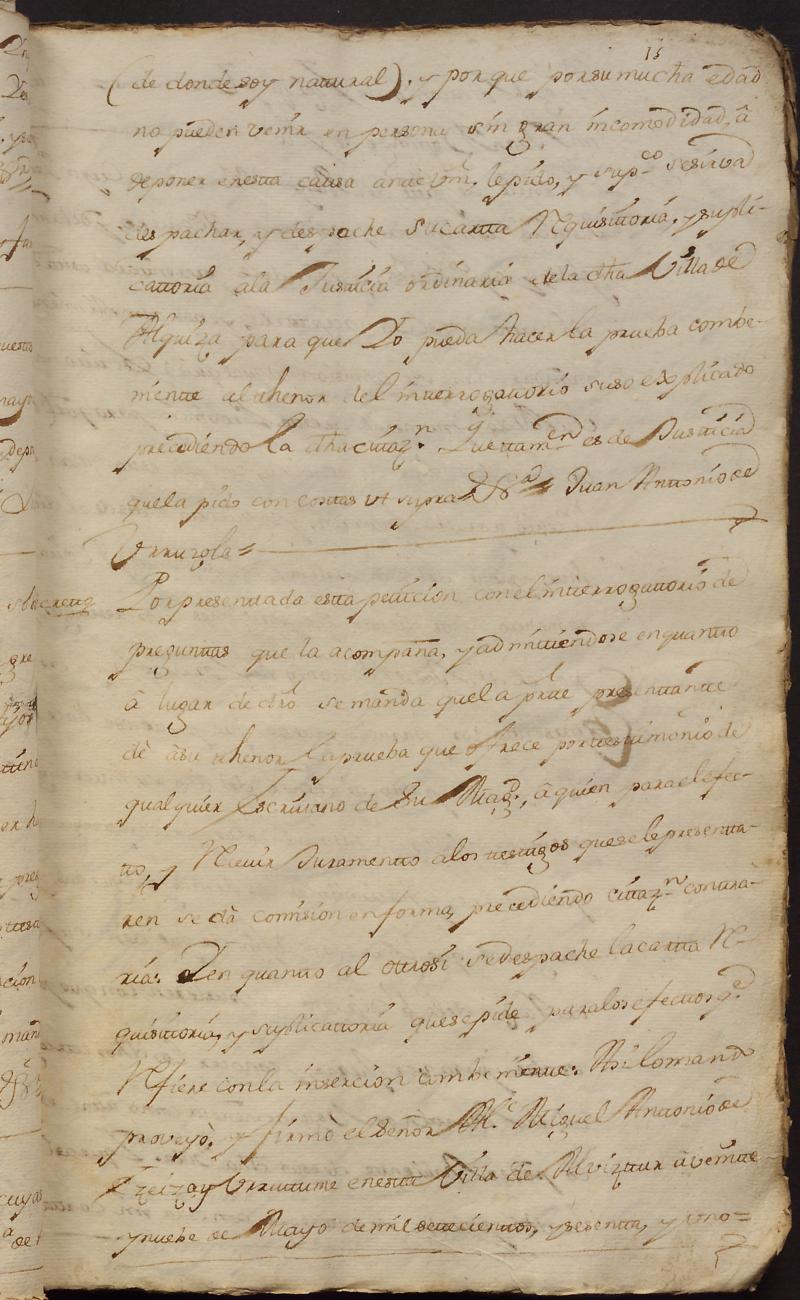 15
(de donde soy natural). y porque por su mucha edad
no pueden venir en persona sin gran incomodidad, â
deponer en esta causa ante Vm. le pido, y supco se sirva
despachar, y despache su cartta Requisittoria, y supli-
cattoria â la Justicia ordinaria de la dha Villa de
Alquiza para que Yo pueda hacer la prueba combe-
niente al thenor del interrogattorio suso explicado
precediendo la dha cittazn. que es de Justicia
que la pido con costas ut supra Juan Antonio de
Urruzola =
Decretto
Por presenttada esta petticion con el interrogattorio de
preguntas que la acompaña, y admittiendose en quanto
â lugar de dro se manda que la pfte presenttante
dè â su thenor la prueba que ofrece por testimonio de
qualquier Escrivano de Su Magd., â quien para el efec-
tto, y Recivir Juramentto a los testigos que se le presentta-
ren se dâ comision en forma, precediendo cittazn contra-
ria: Y en quanto al ottrosi se despache la cartta Re-
quisittoria, y suplicattoria que se pide para los efecttos qe
Refiere con la insercion combeniente: Asi lo mandò
proveyò, y firmò el Señor Alce Miguel Antonio de
Yzeizay Urruttume en esta Villa de Alvizttur â veintte
y nuebe de Mayo de mil settecienttos, y sesentta, y uno =